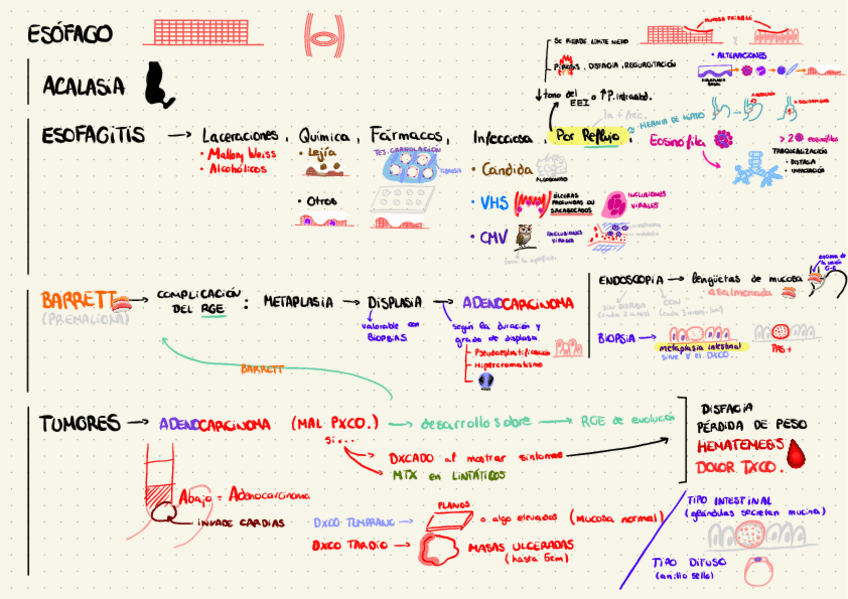 ESÓFAGO
MUCOSA FRIABLE
SE PIERDE LÍMITE NETO
PIROSIS, DISFAGIA, REGURGITACIÓN
• ALTERACIONES
ACALASIA
↓ tono del EEI o ↑ P. intraabd.
HERNIA DE HIATO
ESOFAGITIS → Laceraciones, Química, Fármacos, Infecciosa, Por Reflujo, Eosinófila
• Mallory Weiss
• Alcohólicos
• Lejía
• Otros
• Cándida
ALGODONOSO
• VHS
ÚLCERAS PROFUNDAS EN SACABOCADOS
INCLUSIONES VIRALES
• CMV
INCLUSIONES VIRALES
TRAQUEALIZACIÓN
• DISFAGIA
• IMPACTACIÓN
BARRETT → COMPLICACIÓN DEL RGE : METAPLASIA → DISPLASIA → ADENOCARCINOMA
(PREMALIGNA)
valorable con BIOPSIAS
según la duración y grado de displasia
- Pseudoestratificación
- Hipercromatismo
ENDOSCOPIA → lengüetas de mucosa asalmonada
SIN DISPLASIA (cada 2 años)
BIOPSIA →
metaplasia intestinal
sine
PAS+
BARRETT
TUMORES → ADENOCARCINOMA (MAL PXCO.) → desarrollo sobre → RGE de evolución
si...
DXCADO al mostrar síntomas
MTX en LINFÁTICOS
DISFAGIA
PÉRDIDA DE PESO
HEMATEMESIS
DOLOR TXCO.
Abajo = Adenocarcinoma
INVADE CARDIAS
DXCO TEMPRANO →
PLANOS
o algo elevados (Mucosa normal)
DXCO TARDÍO →
MASAS ULCERADAS
(hasta 5cm)
TIPO INTESTINAL
(glándulas secretan mucina)
TIPO DIFUSO
(anillo sello)